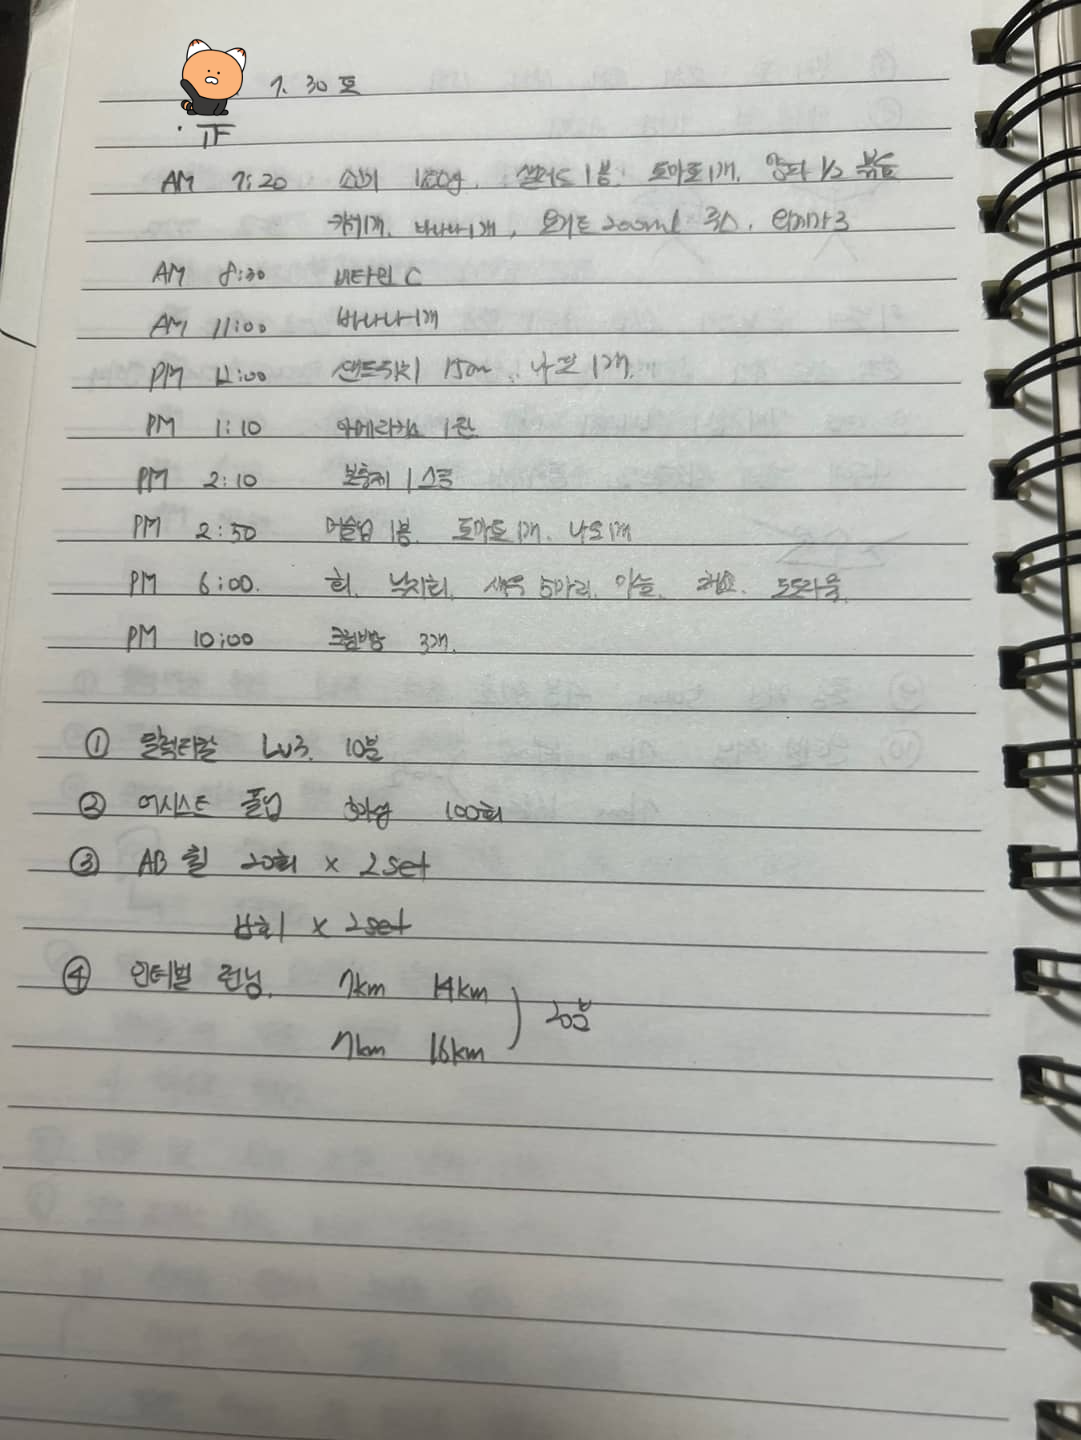 7. 30 토
AM 7:20 소고기 100g. 샐러드 1봉. 토마토 1개. 양파 1/2 볶음
키위1개. 바나나1개, 요거트 200ml
AM 8:30 비타민 C
AM 11:00 바나나1개
PM 12:00 샌드위치 15cm. 1개.
PM 1:10 아메리카노 1잔
PM 2:10 보충제 1스쿱
PM 2:50 머슬업 1봉. 토마토 1개. 1개
PM 6:00. 회. 낙지회. 새우 5마리.
PM 10:00 크림빵 3개.
① 일렉티칼 Lv3. 10분
② 어시스트 풀업 100회
③ AB 휠 20회 x 2set
x 2set
④ 인터벌 런닝. 7km 14km
7km 16km